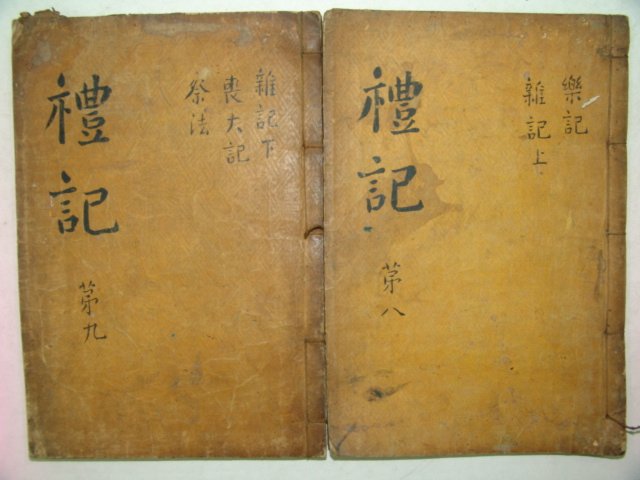 樂記
雜記上
禮記
苐八
雜記下
喪大記
祭法
禮記
苐九